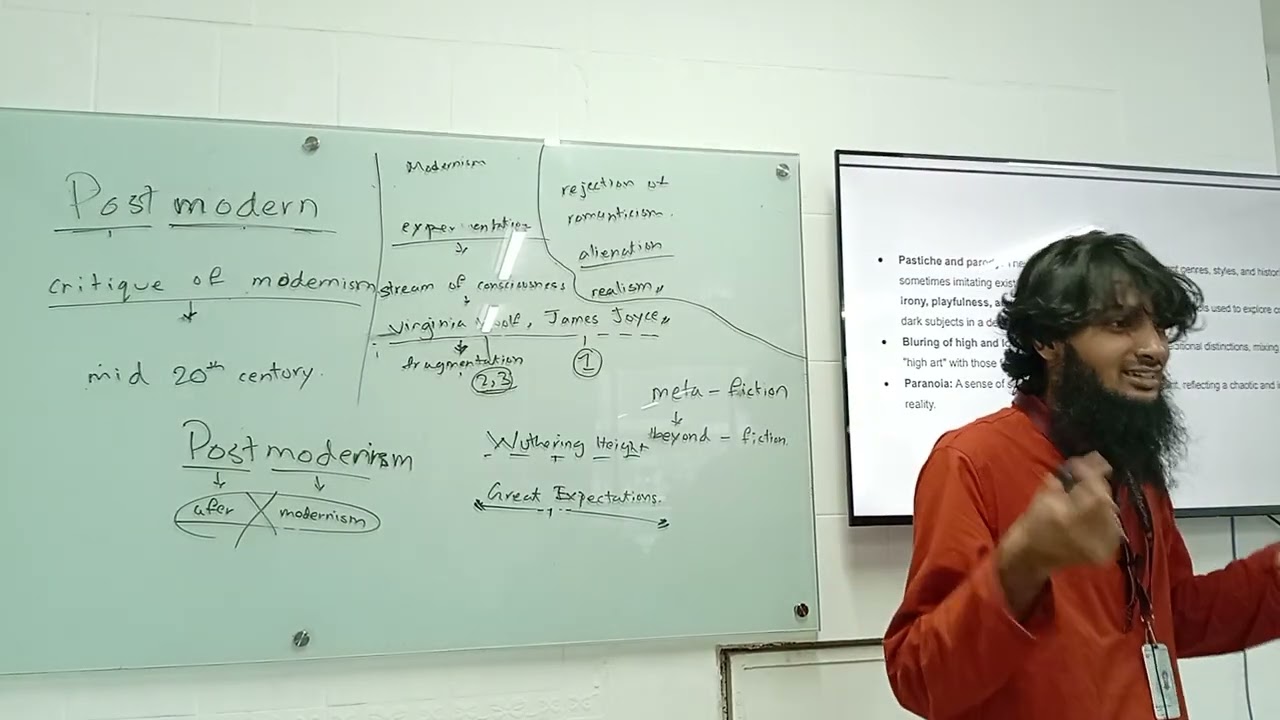 Post modern
critique of modernism
mid 20th century.
Post modernism
afer modernism
Modernism
experimentation
stream of consciousness
Virginia Woolf, James Joyce,,
fragmentation
2,3
1
rejection of
romanticism.
alienation
realism,,
meta-fiction
beyond-fiction
Wuthering Height
Great Expectations.
Pastiche and
genres, styles, and
sometimes imitating
irony, playfulness,
used to explore
dark subjects in a
Bluring of high and
distinctions, mixing
"high art" with those
Paranoia: A sense of
reflecting a chaotic and
reality.